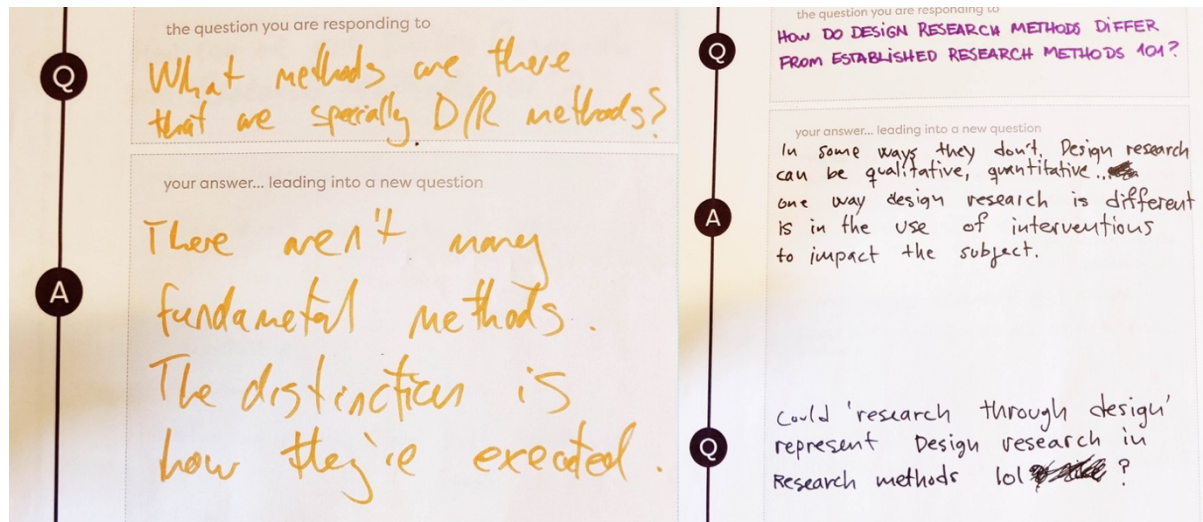 the question you are responding to
Q
What methods are there
that are specially D/R methods?
your answer... leading into a new question
A
There aren't many
fundametal methods.
The distinction is
how they're executed.
the question you are responding to
Q
HOW DO DESIGN RESEARCH METHODS DIFFER
FROM ESTABLISHED RESEARCH METHODS 101?
your answer... leading into a new question
In some ways they don't. Design research
can be qualitative, quantitative...
one way design research is different
A
is in the use of interventions
to impact the subject.
Could 'research through design'
Q
represent Design research in
Research methods 101 ?